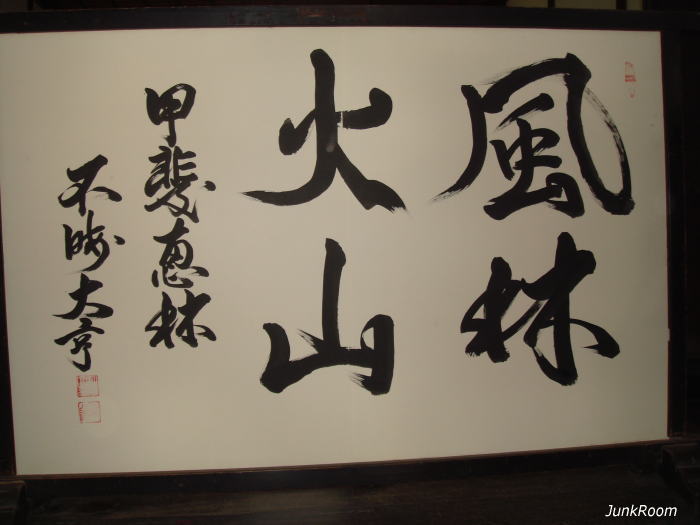 風林
火山
甲斐恵林
不晦大亨
JunkRoom